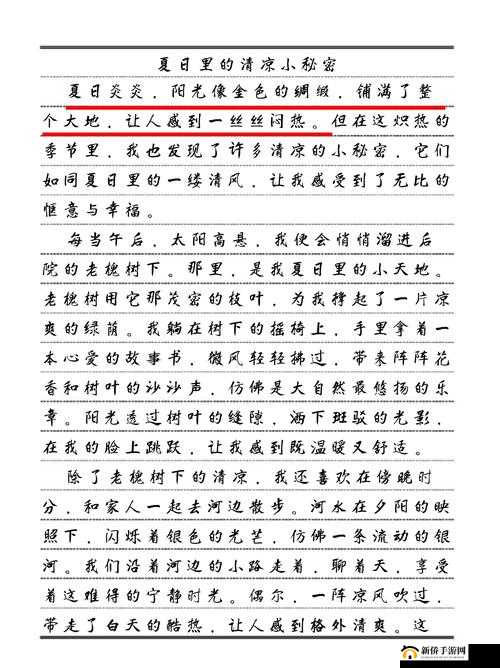 夏日里的清凉小秘密
夏日炎炎，阳光像金色的绸缎，铺满了整
个大地，让人感到一丝丝闷热。但在这炽热的
季节里，我也发现了许多清凉的小秘密，它们
如同夏日里的一缕清风，让我感受到了无比的
惬意与幸福。
每当午后，太阳高悬，我便会悄悄溜进后
院的老槐树下。那里，是我夏日里的小天地。
老槐树用它那茂密的枝叶，为我撑起了一片凉
爽的绿荫。我躺在树下的摇椅上，手里拿着一
本心爱的故事书，微风轻轻拂过，带来阵阵花
香和树叶的沙沙声，仿佛是大自然最悠扬的乐
章。阳光透过树叶的缝隙，洒下斑驳的光影，
在我的脸上跳跃，让我感到既温暖又舒适。
除了老槐树下的清凉，我还喜欢在傍晚时
分，和家人一起去河边散步。河水在夕阳的映
照下，闪烁着银色的光芒，仿佛一条流动的银
河。我们沿着河边的小路走着，聊着天，享受
着这难得的宁静时光。偶尔，一阵凉风吹过，
带走了白天的酷热，让人感到格外清爽。这
新侨手游网